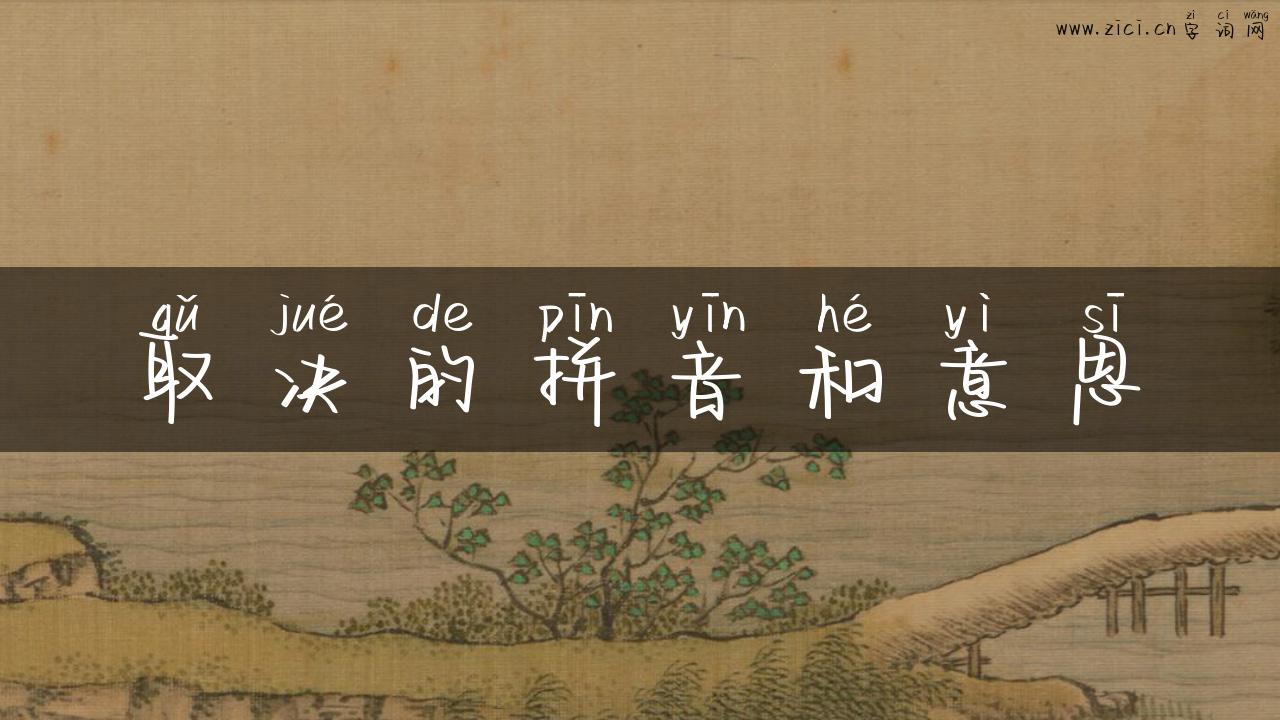 zì cí wǎng
www.zici.cn 字 词 网
qǔ jué de pīn yīn hé yì sī
取 决 的 拼 音 和 意 思